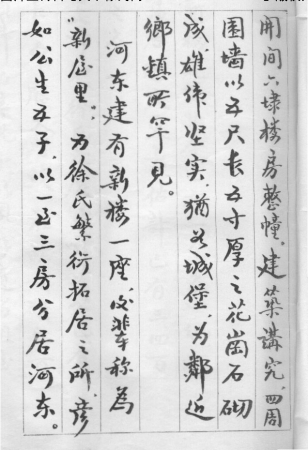 用间六埭楼房整幢。建築講究，四周
围墙以五尺长五寸厚之花崗石砌
成，雄伟坚实，犹若城堡，为鄰近
鄉鎮所罕见。
河东建有新楼一座，後輩称為
"新屋里"，为徐氏繁衍拓居之所，彦
如公生五子，以一至三房分居河东。